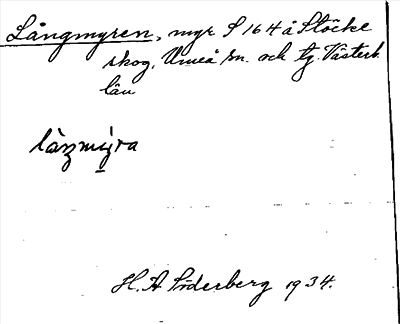 Långmyren, myr S 164 å Stöcke
skog, Umeå sn. och tg. Västerb.
län
làŋmy̱ra
H. A. Söderberg 1934.